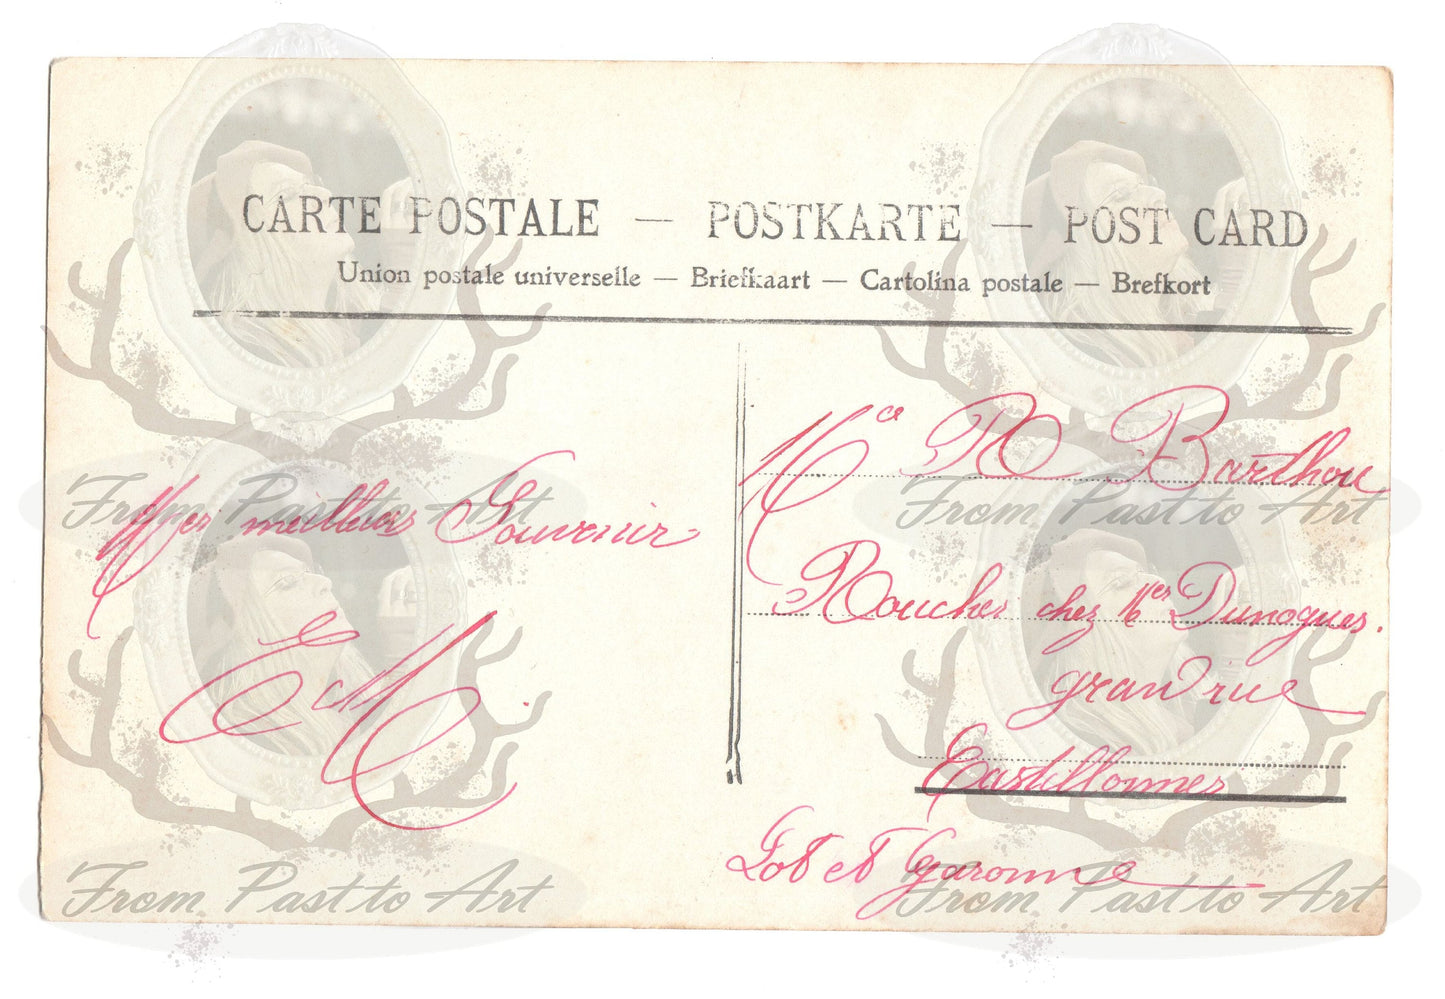 CARTE POSTALE — POSTKARTE — POST CARD
Union postale universelle — Briefkaart — Cartolina postale — Brefkort
Mes meilleurs Souvenir
EM
Barthou
chez Mes Dunogues.
grand rue
Castillonnes
Lot et Garonne
From Past to Art
From Past to Art
From Past to Art
From Past to Art